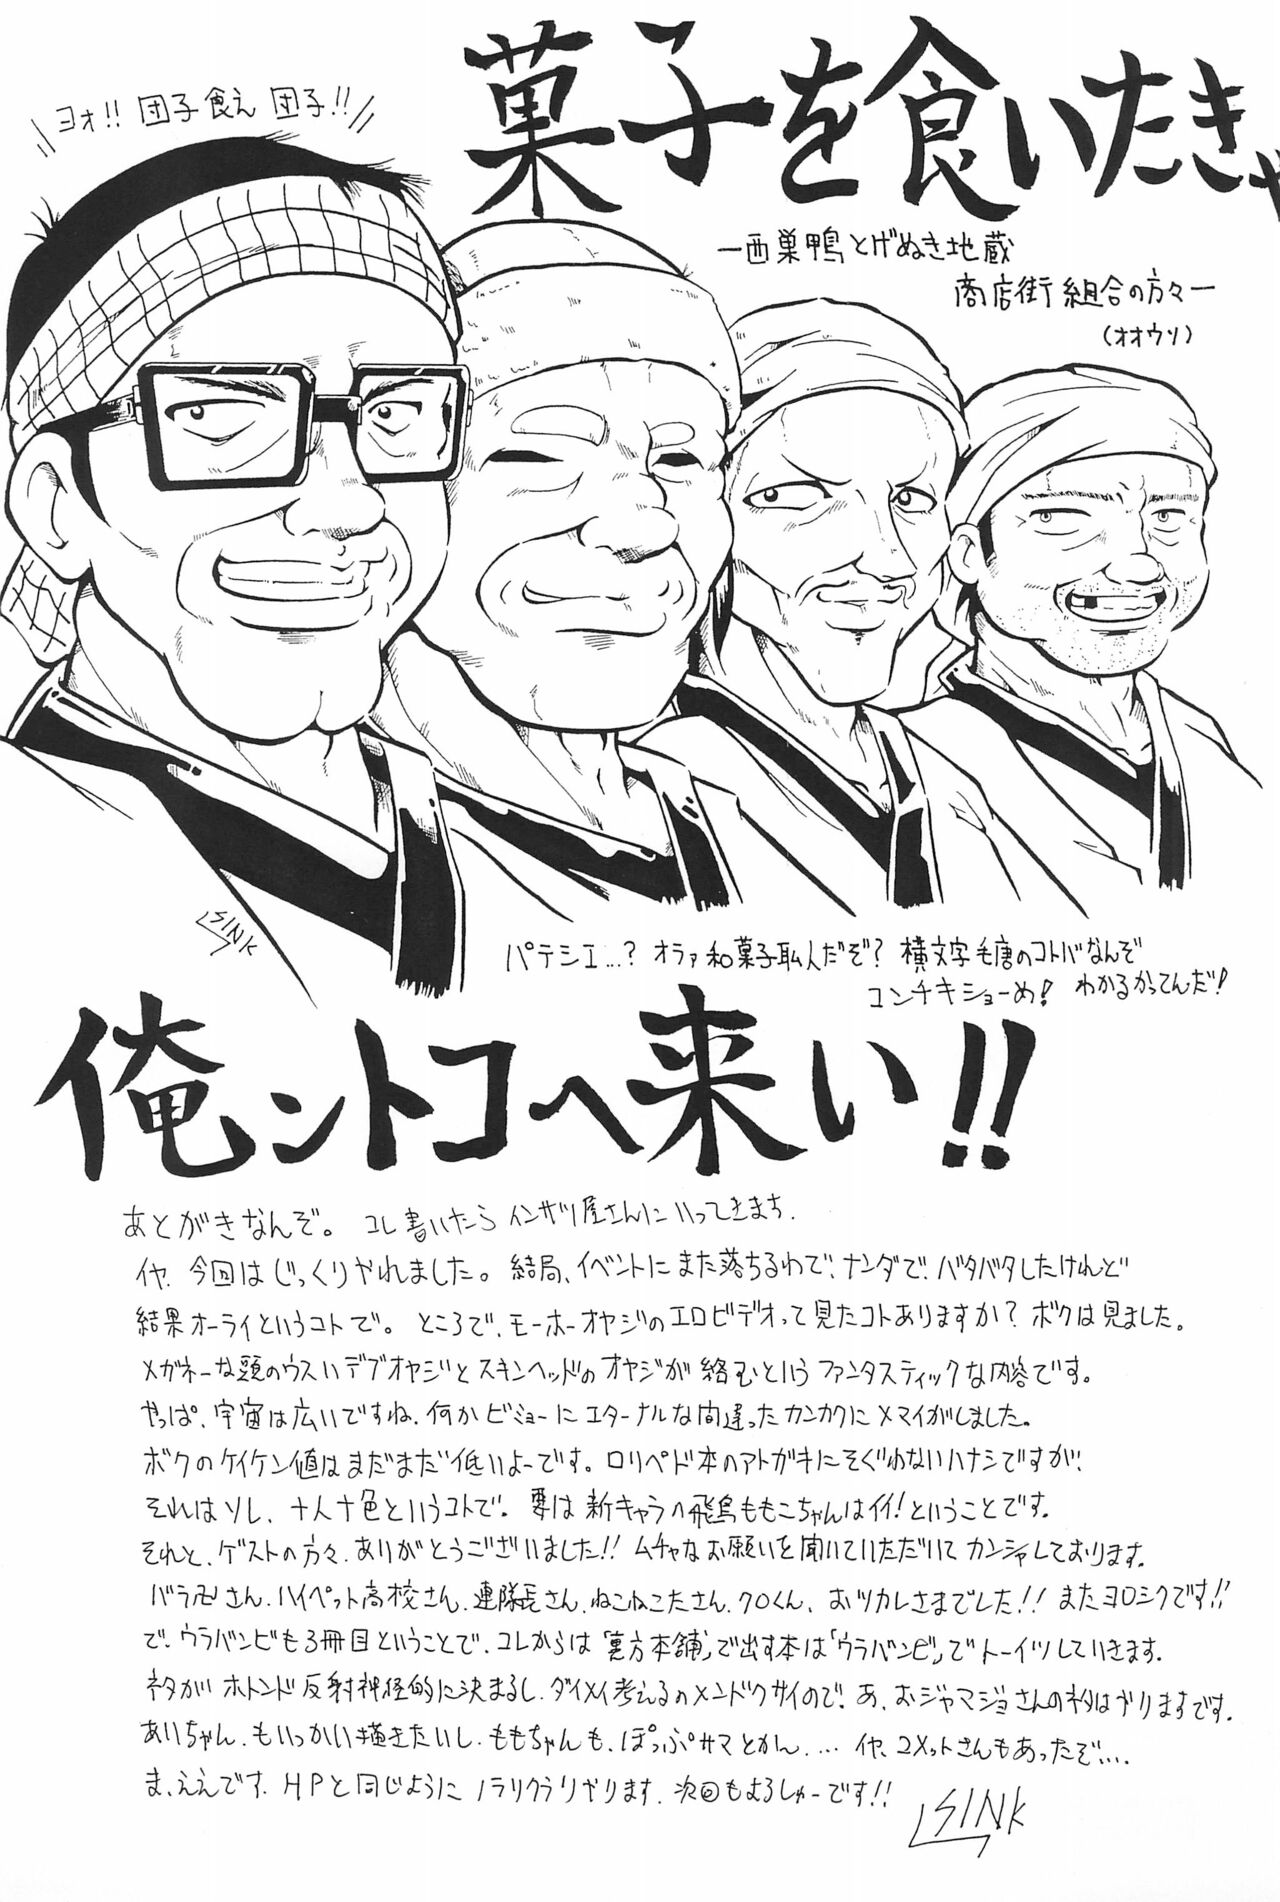 ヨォ!! 団子食え 団子!!
菓子を食いたきゃ
ー西巣鴨とげぬき地蔵
商店街 組合の方々ー
(オオウソ)
SINK
パテシエ…? オラァ和菓子職人だぞ? 横文字毛唐のコトバなんぞ
コンチキショーめ! わかるかってんだ!
俺ントコへ来い!!
あとがきなんぞ。 コレ書いたら インサツ屋さんにいってきまち.
イヤ、今回はじっくりやれました。結局、イベントにまた落ちるわで、ナンダで、バタバタしたけれど
結果オーライというコトで。ところで、モーホーオヤジのエロビデオって見たコトありますか? ボクは見ました。
メガネーな頭のウスいデブオヤジとスキンヘッドのオヤジが絡むというファンタスティックな内容です。
やっぱ、宇宙は広いですね、何かビミョーにエターナルな間違ったカンカクにメマイがしました。
ボクのケイケン値はまだまだ低いよーです。ロリペド本のアトガキにそぐわないハナシですが、
それはソレ、十人十色というコトで。要は新キャラの飛鳥ももこちゃんはイイ!ということです。
それと、ゲストの方々、ありがとうございました!! ムチャなお願いを聞いていただいてカンシャしております。
バラ さん、ハイペット高校さん、連隊長さん、ねこねこたさん、クロくん、おツカレさまでした!! またヨロシクです!!
で、ウラバンビも3冊目ということで、コレからは「裏方本舗」で出す本は「ウラバンビ」でトーイツしていきます。
ネタがホトンド反射神経的に決まるし、ダイメイ考えるのメンドクサイので。あ、おジャマジョさんのネタはヤリますです。
あいちゃん、もいっかい描きたいし、ももちゃんも、ぽっぷサマとかん、… イヤ、ユメットさんもあったぞ…。
ま、ええです。HPと同じようにノラリクラリやります。次回もよろしゅーです!!
SINK